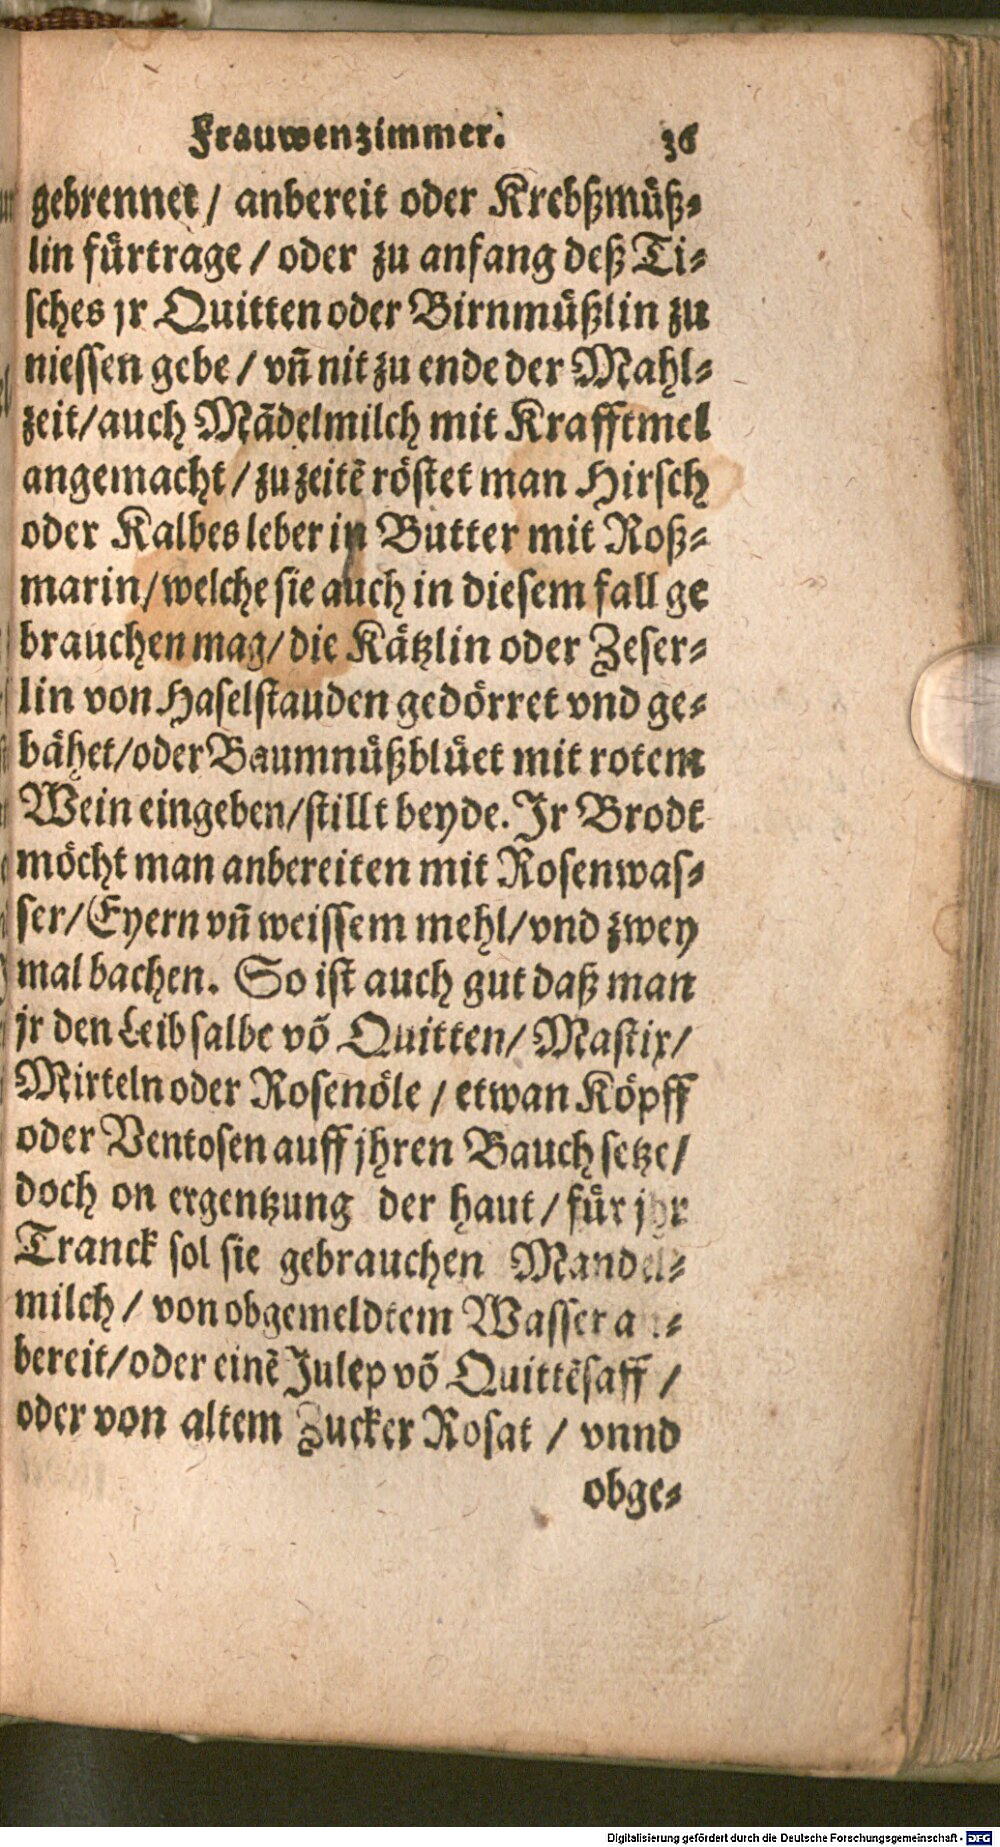 Frauwenzimmer. 36
gebrennet / anbereit oder Krebßmüß⸗
lin fürtrage / oder zu anfang deß Ti⸗
sches jr Quitten oder Birnmüßlin zu
niessen gebe / vñ nit zu ende der Mahl⸗
zeit / auch Mãdelmilch mit Krafftmel
angemacht / zu zeitẽ röstet man Hirsch
oder Kalbes leber in Butter mit Roß⸗
marin / welche sie auch in diesem fall ge
brauchen mag / die Kätzlin oder Zeser⸗
lin von Haselstauden gedörret vnd ge⸗
bähet / oder Baumnüßblüet mit rotem
Wein eingeben / stillt beyde. Jr Brodt
möcht man anbereiten mit Rosenwas⸗
ser / Eyern vñ weissem mehl / vnd zwey
mal bachen. So ist auch gut daß man
jr den Leib salbe võ Quitten / Mastix /
Mirteln oder Rosenöle / etwan Köpff
oder Ventosen auff jhren Bauch setze /
doch on ergentzung der haut / für jhr
Tranck sol sie gebrauchen Mandel⸗
milch / von obgemeldtem Wasser an⸗
bereit / oder einẽ Julep võ Quittẽsaff /
oder von altem Zucker Rosat / vnnd
obge⸗
Digitalisierung gefördert durch die Deutsche Forschungsgemeinschaft - DFG